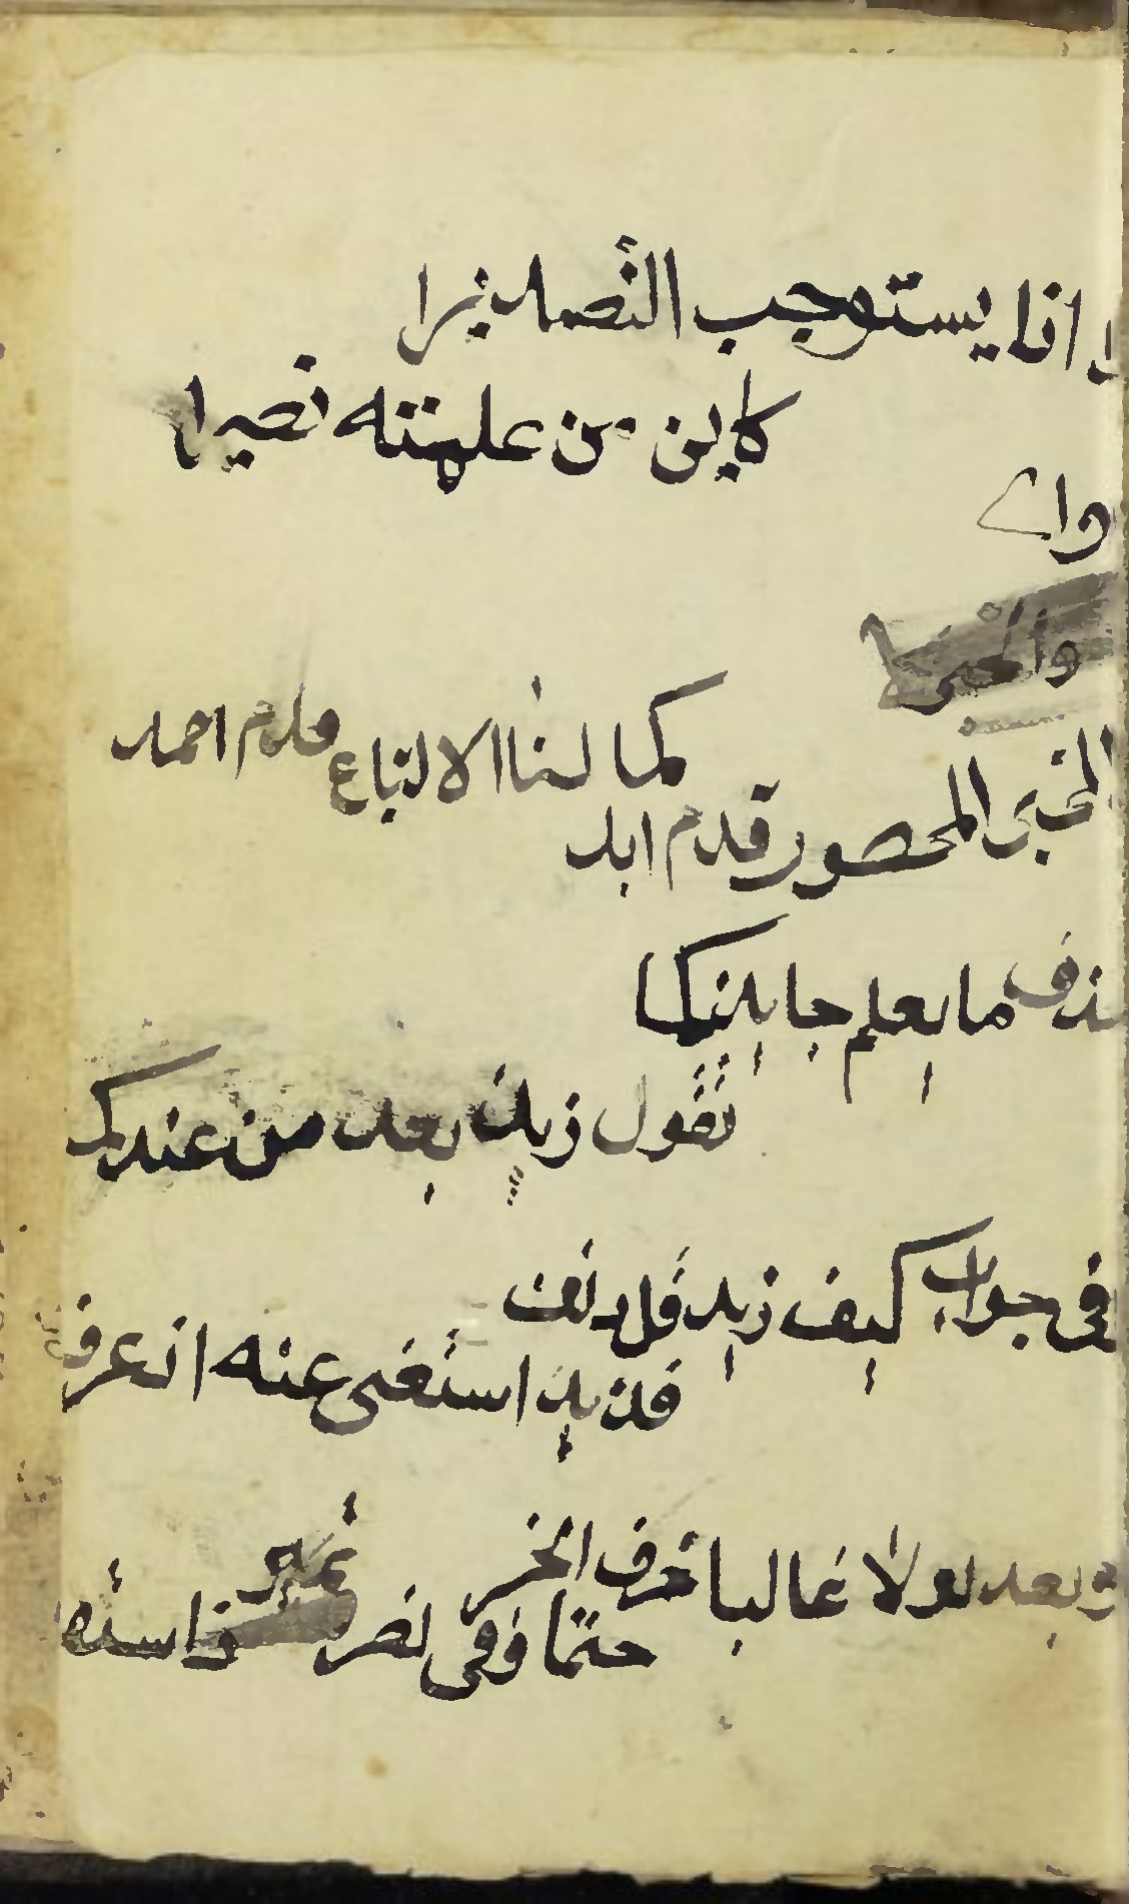 اذا يستوجب التصديرا
كاين من علمته نصيرا
والخبر
الخبر المحصور قدم ابدا
كما لنا الا اتباع احمدا
حذف ما يعلم جايز كما
تقول زيد بعد من عندكما
وفي جواب كيف زيد قل دنف
فزيد استغنى عنه اذ عرف
وبعد لولا غالبا حذف الخبر
حتما وفي نص